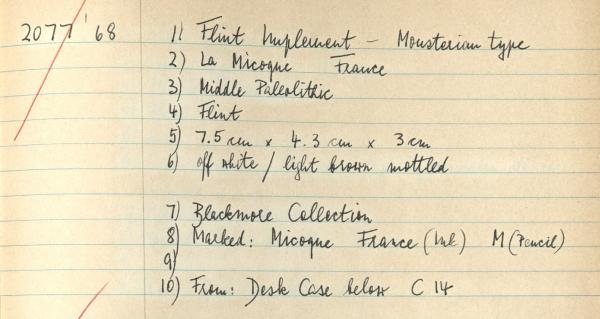 2077 '68 1) Flint Implement - Mousterian type
2) La Micoque France
3) Middle Paleolithic
4) Flint
5) 7.5 cm x 4.3 cm x 3 cm
6) off white / light brown mottled
7) Blackmore Collection
8) Marked: Micoque France (Ink) M (Pencil)
9)
10) From: Desk Case below C 14